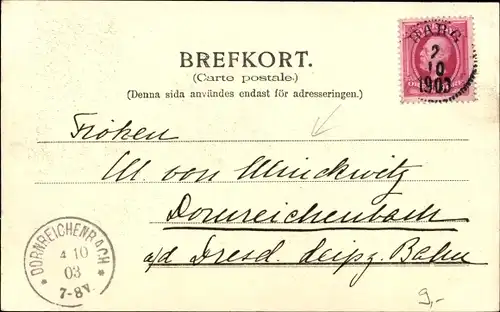 BREFKORT.
(Carte postale.)
(Denna sida användes endast för adresseringen.)
HARG
2
10
1903
Fröken
M. von Minckwitz
Dornreichenbach
a/d Dresd. Leipz. Bahn
DORNREICHENBACH
4 10
03
7-8V.
9,-